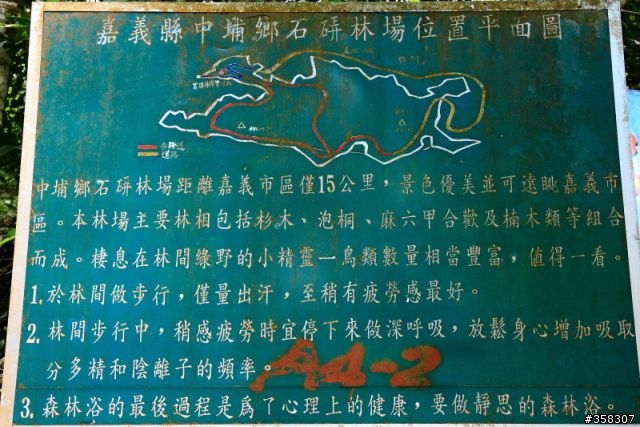 嘉義縣中埔鄉石硦林場位置平面圖
步道
道路
中埔鄉石硦林場距離嘉義市區僅15公里，景色優美並可遠眺嘉義市
區。本林場主要林相包括杉木、泡桐、麻六甲合歡及楠木類等組合
而成。棲息在林間綠野的小精靈—鳥類數量相當豐富，值得一看。
1.於林間做步行，僅量出汗，至稍有疲勞感最好。
2.林間步行中，稍感疲勞時宜停下來做深呼吸，放鬆身心增加吸取
分多精和陰離子的頻率。
A4-2
3.森林浴的最後過程是為了心理上的健康，要做靜思的森林浴。
#358307